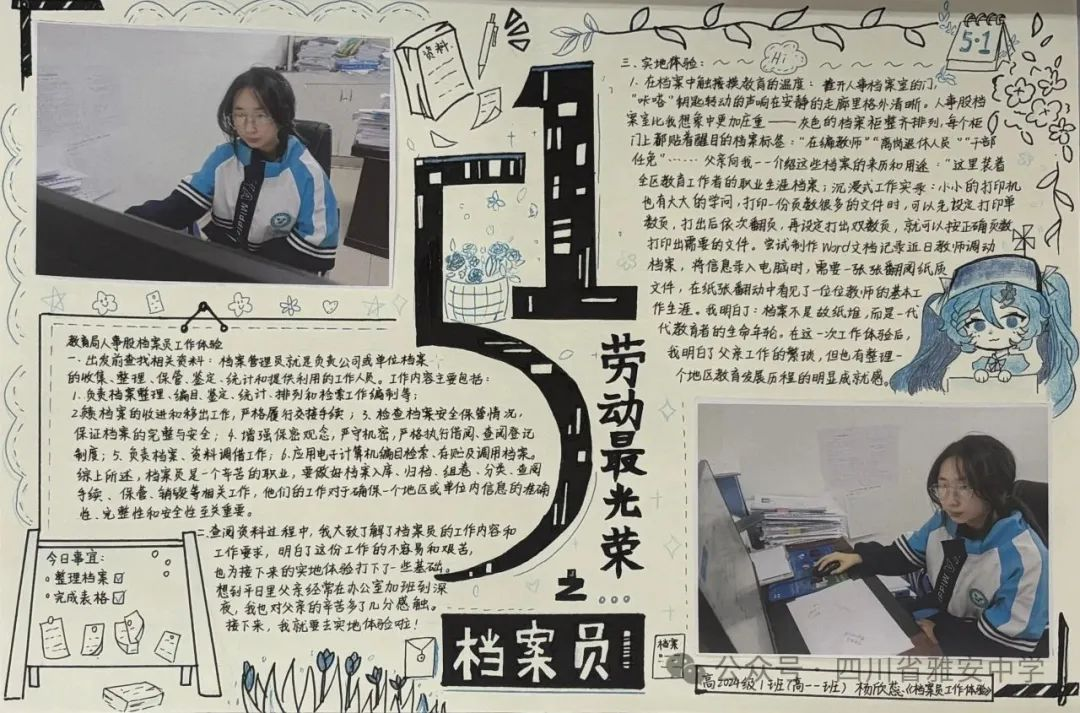 资料
5·1
Hi
51
劳动最光荣
之...
档案员
教育局人事股档案员工作体验
一、出发前查找相关资料：档案管理员就是负责公司或单位档案
的收集、整理、保管、鉴定、统计和提供利用的工作人员。工作内容主要包括：
1.负责档案整理、编目、鉴定、统计、排列和检索工作编制等；
2.负责档案的收进和移出工作，严格履行交接手续；3.检查档案安全保管情况，
保证档案的完整与安全；4.增强保密观念，严守机密，严格执行借阅、查阅登记
制度；5.负责档案、资料调借工作；6.应用电子计算机编目检索、存贮及调用档案。
综上所述，档案员是一个辛苦的职业，要做好档案入库、归档、组卷、分类、查阅
手续、保管、销毁等相关工作，他们的工作对于确保一个地区或单位内信息的准确
性、完整性和安全性至关重要。
二、查阅资料过程中，我大致了解了档案员的工作内容和
工作要求，明白了这份工作的不容易和艰苦，
也为接下来的实地体验打下了一些基础。
想到平日里父亲经常在办公室加班到深
夜，我也对父亲的辛苦多了几分感触。
接下来，我就要去实地体验啦！
今日事宜：
整理档案
完成表格
三、实地体验：
1.在档案中触摸教育的温度：推开人事档案室的门，
“咔嗒”钥匙转动的声响在安静的走廊里格外清晰。人事股档
案室比我想象中更加庄重——灰色的档案柜整齐排列，每个柜
门上都贴着醒目的档案标签：“在编教师”“离岗退休人员”“干部
任免”……父亲向我一一介绍这些档案的来历和用途：“这里装着
全区教育工作者的职业生涯档案；沉浸式工作实录：小小的打印机
也有大大的学问，打印一份页数很多的文件时，可以先设定打印单
数页，打出后依次翻页，再设定打出双数页，就可以按正确页数
打印出需要的文件。尝试制作Word文档记录近日教师调动
档案，将信息录入电脑时，需要一张张翻阅纸质
文件，在纸张翻动中看见了一位位教师的基本工
作生涯。我明白了：档案不是故纸堆，而是一代
代教育者的生命年轮。在这一次工作体验后，
我明白了父亲工作的繁琐，但也有整理一
个地区教育发展历程的明显成就感。
档案
公众号·四川省雅安中学
高2024级1班（高一一班） 杨欣蕊《档案员工作体验》